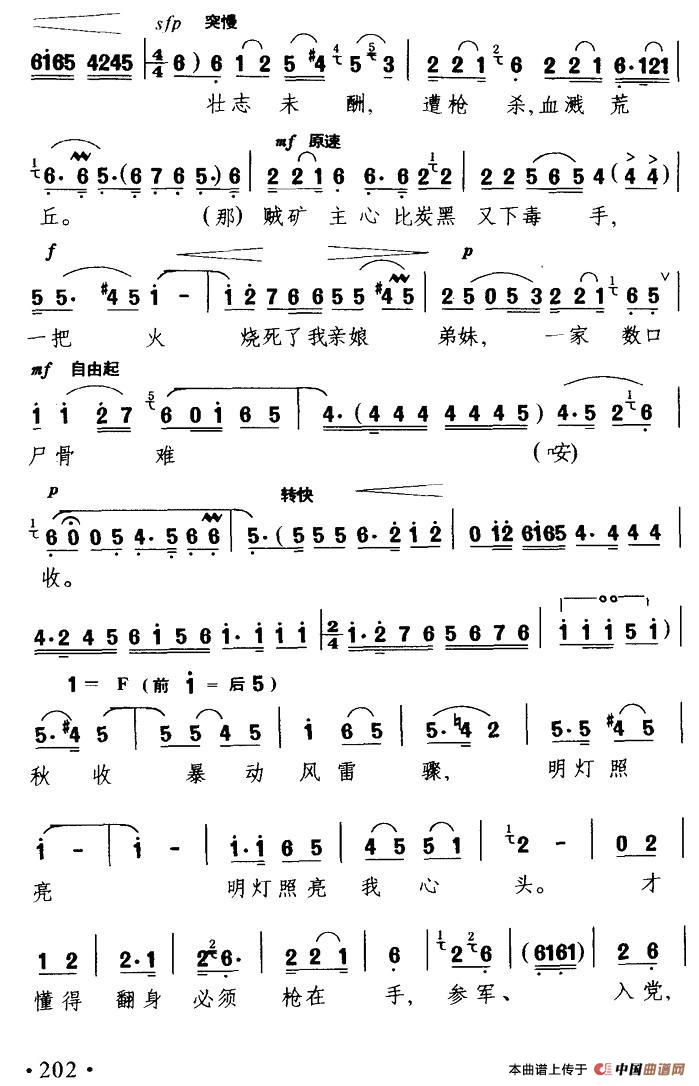 sfp 突慢
6165 4245 4/4 6) 6 1 2 5 #4 4 5 5 3 2 2 1 2 6 2 2 1 6·121
壮志未酬, 遭枪杀,血溅荒
mf 原速
1 6· 6 5·(6 7 6 5·) 6 2 2 1 6 6· 6 2 2 2 2 5 6 5 4 (4 4)
丘。 (那) 贼矿主心比炭黑又下毒手,
f p
5 5· #4 5 1 - 1 2 7 6 6 5 5 #4 5 2 5 0 5 3 2 2 1 1 6 5 ∨
一把火 烧死了我亲娘 弟妹, 一家数口
mf 自由起
1 1 2 7 5 6 0 1 6 5 4·(4 4 4 4 4 4 5) 4·5 2 1 6
尸骨难 (唉)
p 转快
1 6 0 0 5 4·5 6 6 5·(5 5 5 6·2 1 2 0 12 6165 4· 4 4 4
收。
4·2 4 5 6 1 5 6 1· 1 1 1 2/4 1·2 7 6 5 6 7 6 1 1 1 5 1)
1= F (前 1 = 后 5)
5·#4 5 5 5 4 5 1 6 5 5·♮4 2 5·5 #4 5
秋收暴动风雷骤, 明灯照
1 - 1 - 1·1 6 5 4 5 5 1 1 2 - 0 2
亮 明灯照亮我心头。 才
1 2 2·1 2 2 6· 2 2 1 6 1 2 2 6 (6161) 2 6
懂得翻身必须枪在手, 参军、 入党,
·202·
本曲谱上传于 中国曲谱网